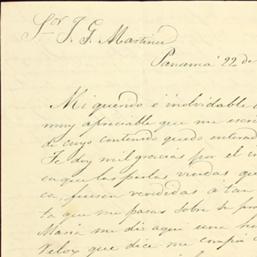 Sor J. G. Martinez
Panamá 22 de
Mi querido é inolvidable
muy apreciable que me escri
de cuyo contenido quedo enterad
Te doy mil gracias por el
ca que las perlas
ca, fuesen vendidas a tan
la que me pasas sobre
Maria me dic aqui una
Velox que dice me compró